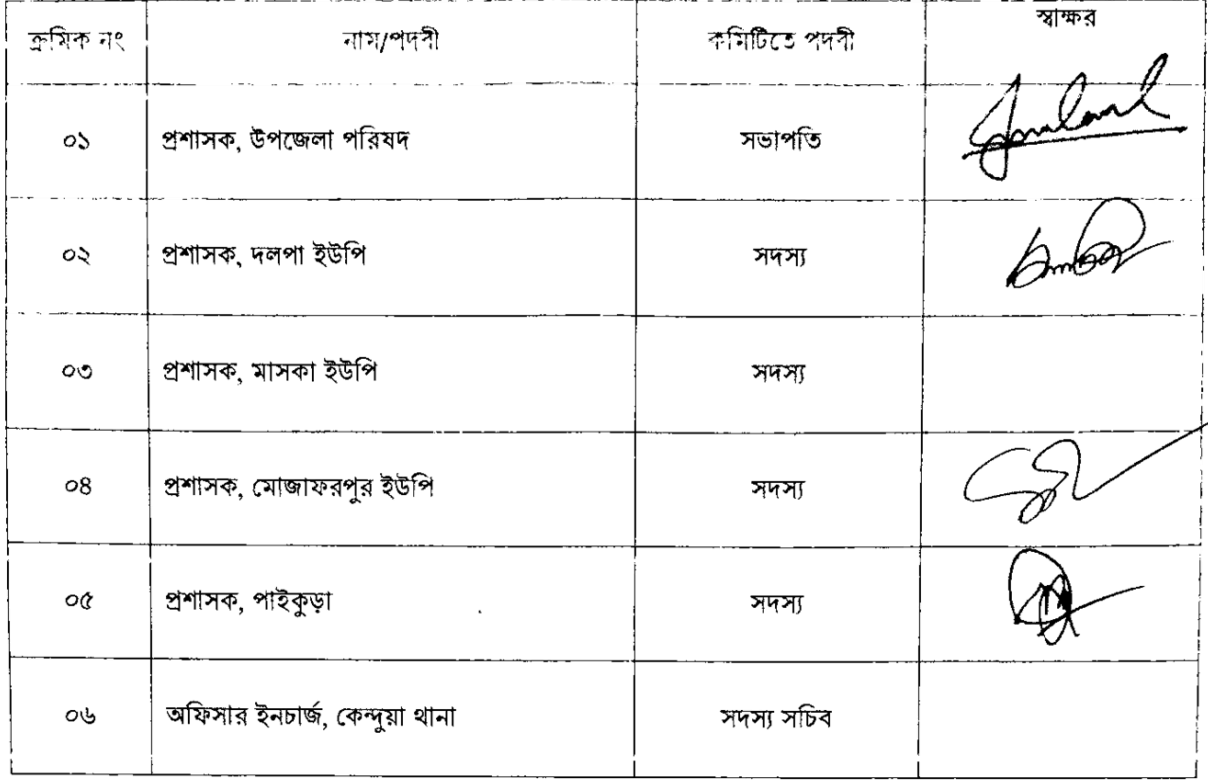 ক্রমিক নং নাম/পদবী কমিটিতে পদবী স্বাক্ষর
০১ প্রশাসক, উপজেলা পরিষদ সভাপতি
০২ প্রশাসক, দলপা ইউপি সদস্য
০৩ প্রশাসক, মাসকা ইউপি সদস্য
০৪ প্রশাসক, মোজাফরপুর ইউপি সদস্য
০৫ প্রশাসক, পাইকুড়া সদস্য
০৬ অফিসার ইনচার্জ, কেন্দুয়া থানা সদস্য সচিব